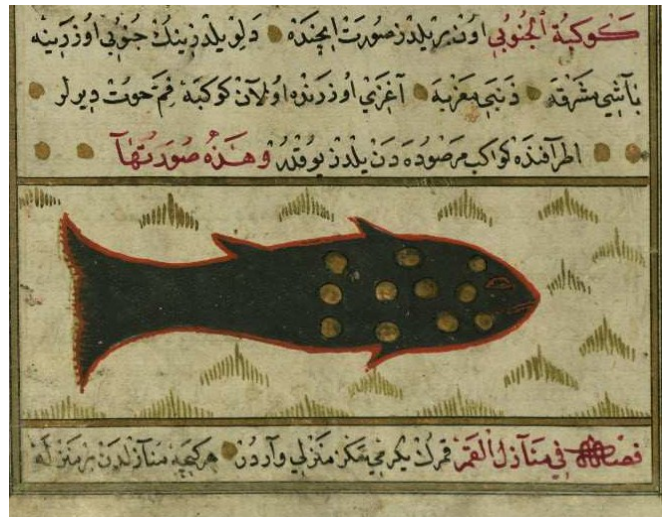 كوكبة الجنوبي اون بر يلدز صورت ايچنده دلو يلدزينك جنوبي اوزرينه
باشي مشرقه ذنبي مغربه آغزي اوزرنده اولان كوكبة فم حوت ديرلر
اطرافنده كواكب مرصوده دن يلدز يوقدر وهذه صورتها
فصل في منازل القمر قمرك يكرمي سكز منزلي واردر هر كيجه منازلدن بر منزله